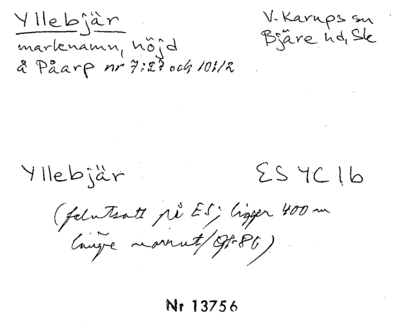 Yllebjär
V. Karups sn
marknamn, höjd
Bjäre hd, Sk
å Påarp nr 7:27 och 101/2
Yllebjär
ES 4C 1b
(felutsatt på ES; ligger 400 m
längre norrut/
Nr 13756